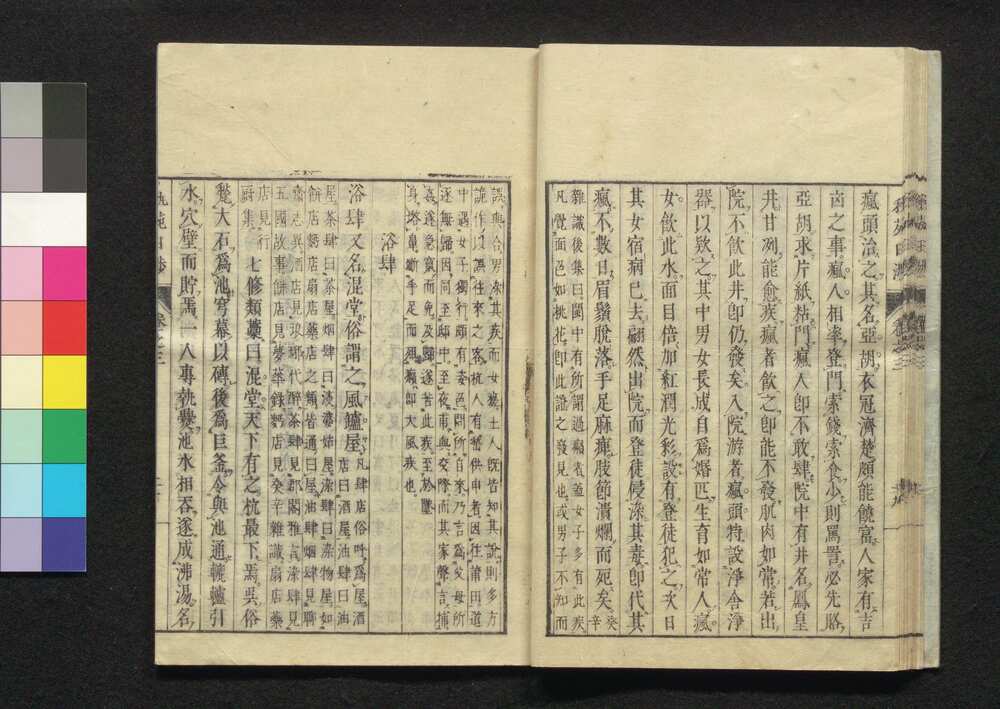 瘋頭治之其名亞胡衣冠濟楚頗能饒富人家有吉
凶之事瘋人相率登門索錢索食少則罵詈必先賂
亞胡求片紙粘門瘋人卽不敢肆院中有井名鳳皇
井甘冽能愈疾瘋者飲之卽能不發肌肉如常若出
院不飲此井卽仍發矣入院游者瘋頭特設淨舍淨
器以欵之其中男女長成自爲婚匹生育如常人瘋
女飲此水面目倍加紅潤光彩設有登徒犯之次日
其女宿病已去翩然出院而登徒侵染其毒卽代其
瘋不數日眉鬚脫落手足麻痺肢節潰爛而死矣癸辛
雜識後集曰閩中有所謂過癩者蓋女子多有此疾
凡覺面色如桃花卽此證之發見也或男子不知而
誤與合男染其疾而女瘥土人旣皆知其說則多方
詭作以誤往來之客杭人有嵇供申者因往莆田道
中遇女子獨行頗有姿色問所自來乃言爲父母所
逐無歸因同至邸中至夜甫與交際而其家聲言捕
姦遂急竄而免及歸遂苦此疾至於墜
耳塔鼻斷手足而殂癩卽大風疾也
浴肆
浴肆又名混堂俗謂之風鑪屋凡肆店俗呼爲屋酒
店曰酒屋油肆曰油
屋茶肆曰茶屋烟肆曰淡婆姑屋染肆曰染物屋如
餅店餳店扇店藥店之類皆通曰屋油肆烟肆見聊
齋志異酒店見琅琊代醉茶肆見郡閣雅言染肆見
五國故事餅店見夢華錄餳店見癸辛雜識扇店藥
店見行
厨集七修類藁曰混堂天下有之杭最下焉吳俗
甃大石爲池穹幕以磚後爲巨釜令與池通轆轤引
水穴壁而貯焉一人專執爨池水相吞遂成沸湯名